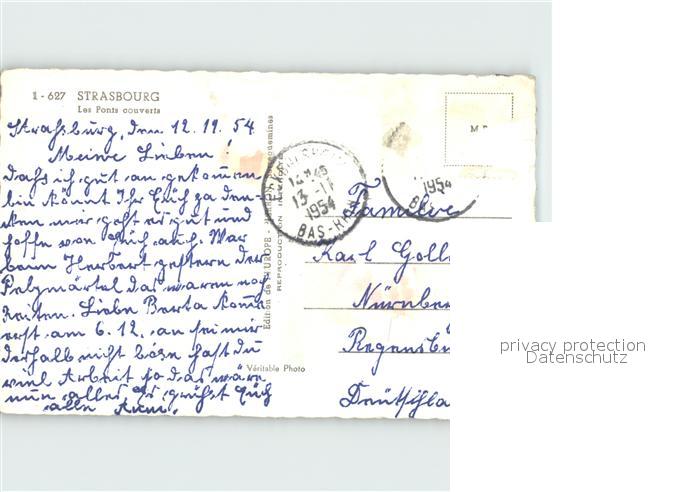 1 - 627 STRASBOURG
Les Ponts couverts
Straßburg, den 12.11.54
Meine Lieben!
Dahs ich gut an gekommen
bin könnt Ihr Euch ja den-
ken mir geht es gut und
hoffe von Euch auch. War
beim Herbert gestern der
Pelzmärtel das waren noch
Zeiten. Liebe Berta komme
erst am 6.12. an sei mir
derhalb nicht böse hast du
viel Arbeit so das wäre
nun alles. Es grüßt Euch
alle
Edition de l'EUROPE
REPRODUCTION
Véritable Photo
13-11
1954
BAS-RHIN
1954
Familie
Karl Goll
Nürnber
Regensbu
Deutschla
privacy protection
Datenschutz